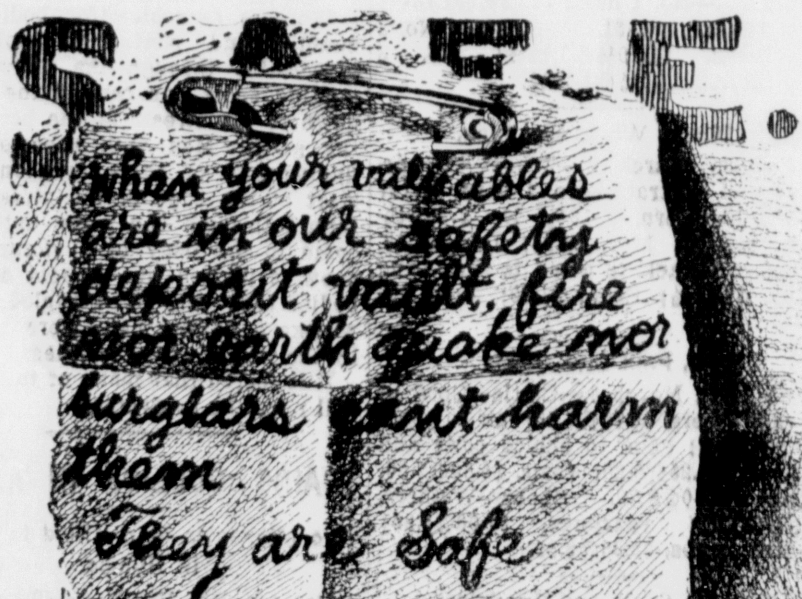 SAFE.
When your valuables
are in our safety
deposit vault, fire
nor earth quake nor
burglars cant harm
them.
They are Safe